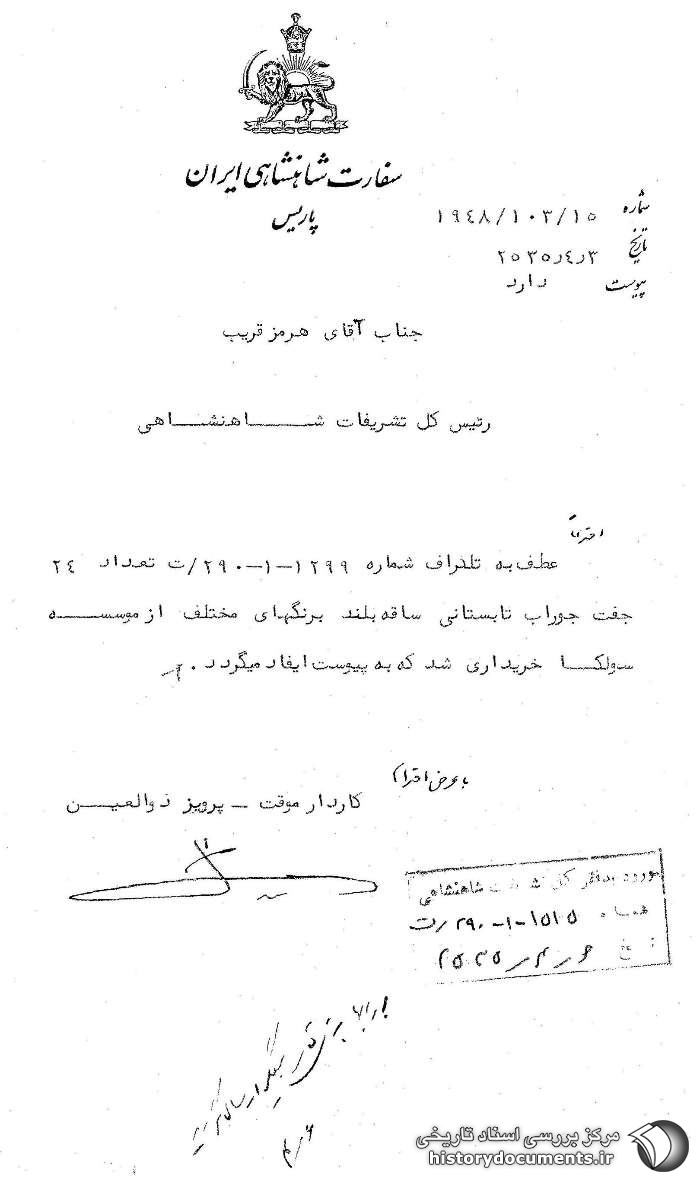 سفارت شاهنشاهی ایران
پاریس
شماره ۱۹۴۸/۱۰۳/۱۵
تاریخ ۲۵۳۵ر۴ر۳
پیوست دارد
جناب آقای هرمز قریب
رئیس کل تشریفات شاهنشاهی
احتراماً
عطف به تلگراف شماره ۱۲۹۹-۱-۲۹۰/ت تعداد ۲۴
جفت جوراب تابستانی ساقه بلند برنگهای مختلف از موسسه
سولکا خریداری شد که به پیوست ایفاد میگردد.
با عرض احترام
کاردار موقت - پرویز ذوالعین
ورود بدفتر کل تشریفات شاهنشاهی
شماره ۱۵۱۵-۱-۲۹۰/ت
تاریخ ۶ر۴ر۲۵۳۵
مرکز بررسی اسناد تاریخی
historydocuments.ir